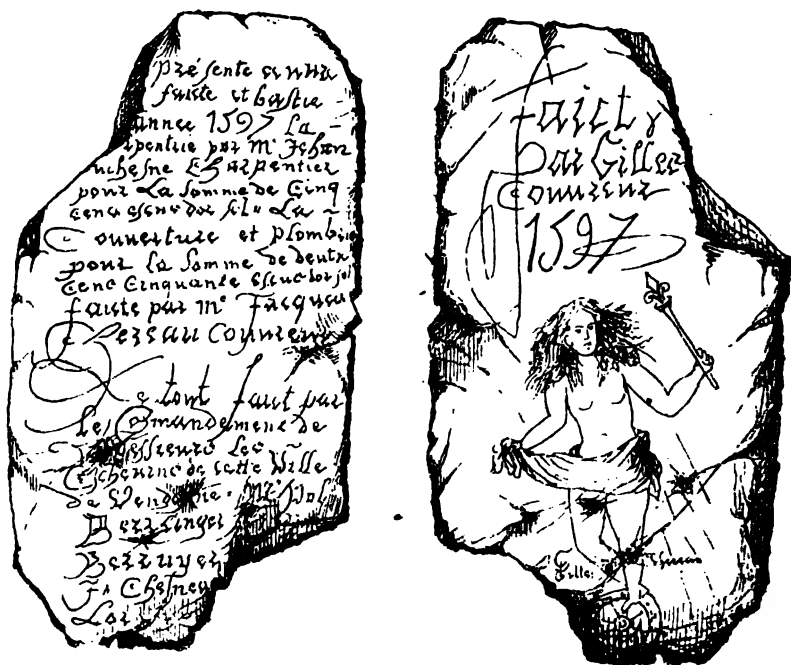 présente œuvre
faicte et bastie
annee 1597 La
rpentrie par Mc Jehan
uchesne Charpentier
pour La somme de Cinq
cens escus dor sol. La
Couverture et plombi
pour la somme de deux
Cens Cinquante escus dor sol
faicte par Mc Jacques
Persau Couvreur
Le tout faict par
le Comandement de
Messieurs Les
Eschevins de cette Ville
de Vendosme. Mc
Berruyer
Chesneau
Faict
Par Gilles
Couvreur
1597
Gilles